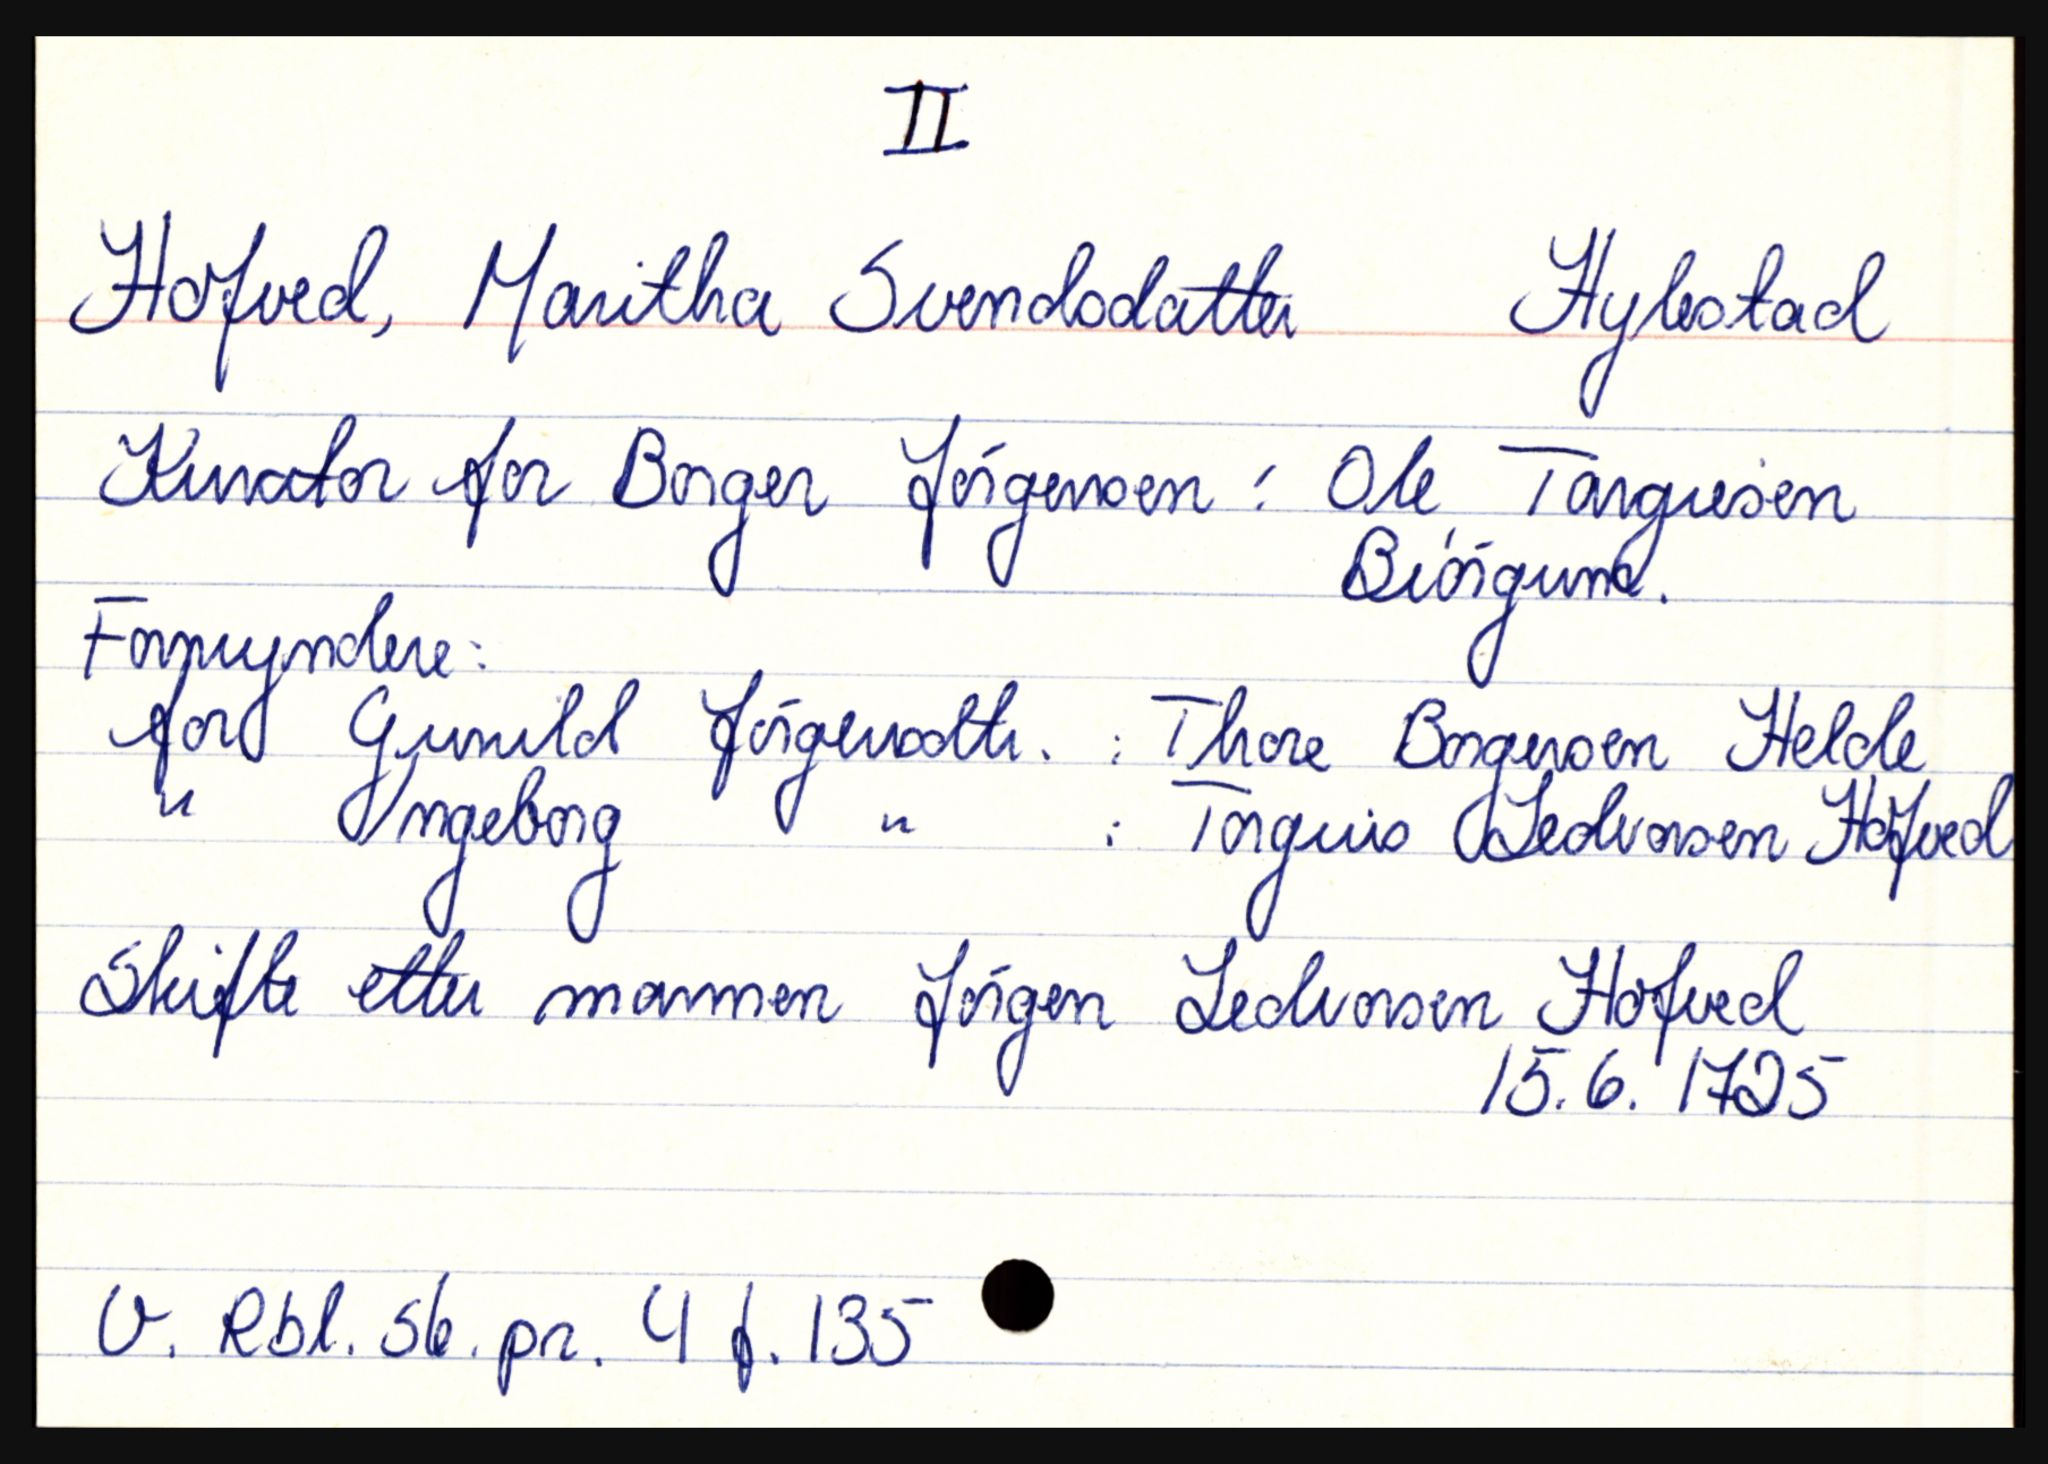 II
Hofved, Maritha Svendsdatter Hylestad
Kurator for Borger Jörgensen: Ole Torguisen
Biörgum.
Formyndere:
for Gunild Jörgensdtr. : Thore Borgersen Helde
" Ingeborg " : Torguis Ledvorsen Hofved
Skifte etter mannen Jörgen Ledvorsen Hofved
15.6. 1725
V. Rbl. sk. pr. 4 f. 135